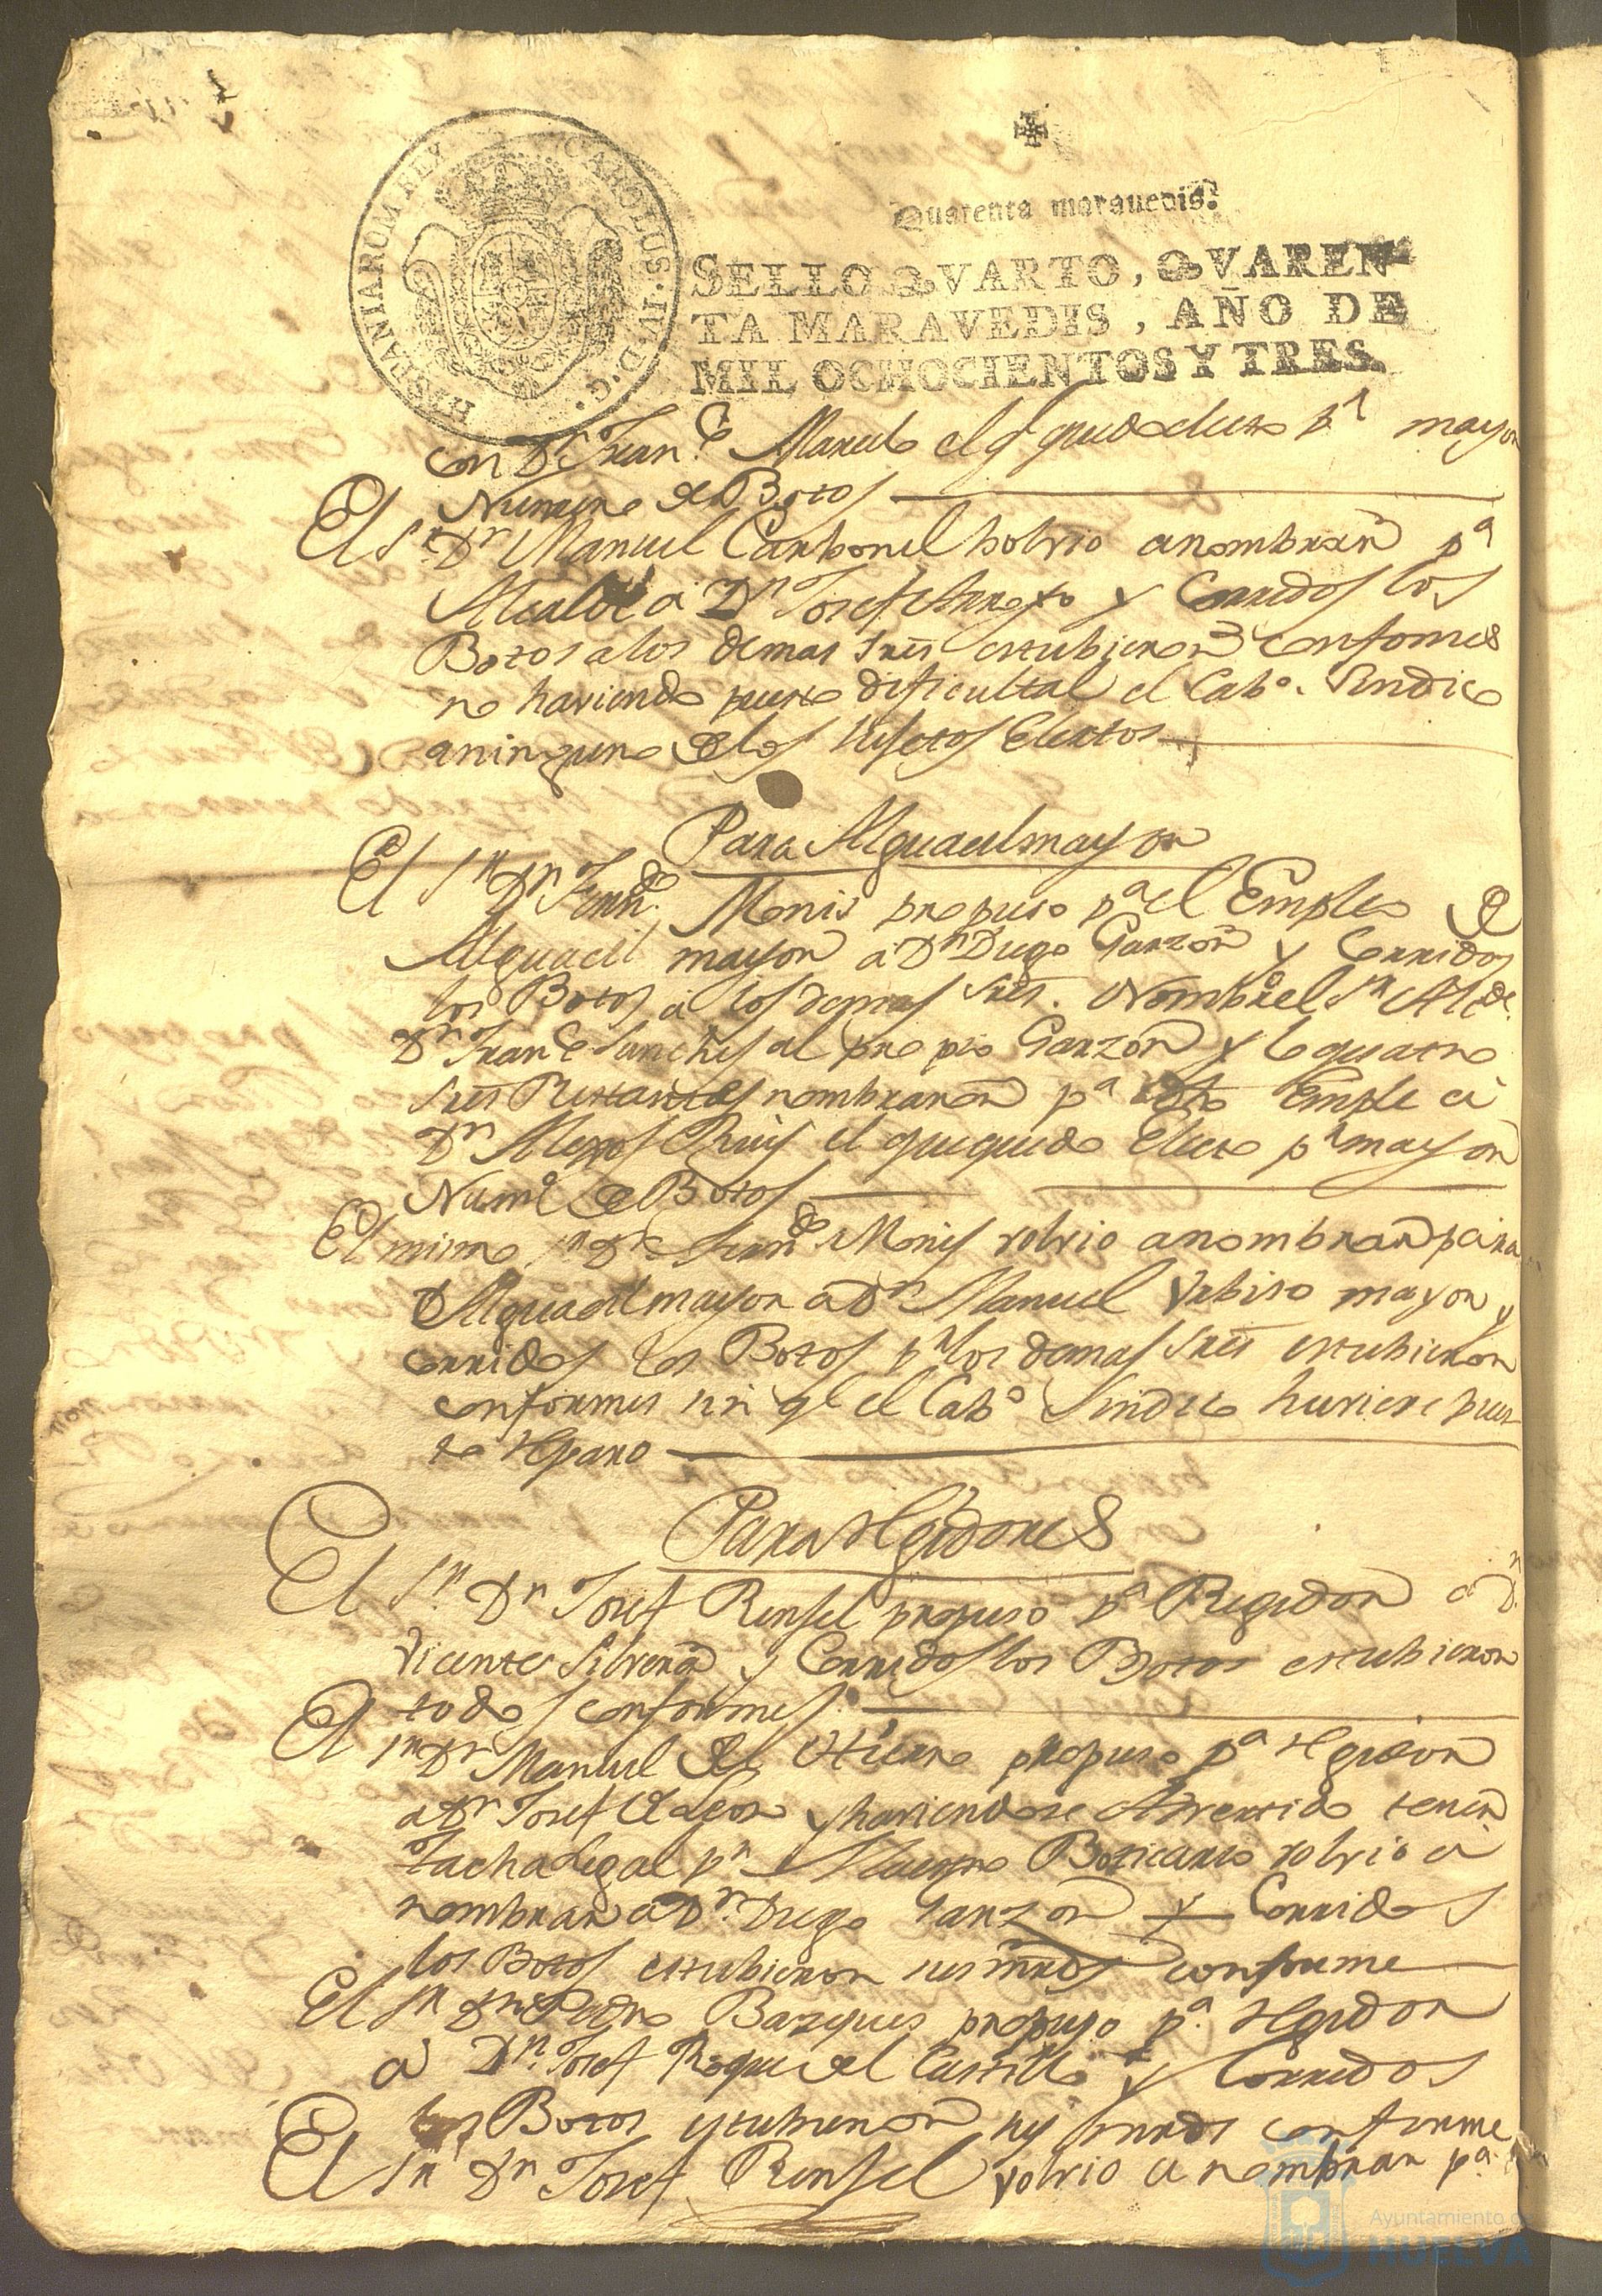 HISPANIARUM REX
CAROLUS·IV·D·G·
Quarenta maravedis.
SELLO QVARTO, QVAREN-
TA MARAVEDIS, AÑO DE
MIL OCHOCIENTOS Y TRES.
con Dn Franco el q quedo electo pr mayor
Numero de Botos
El Sr Dn Manuel Carbonel bolvio a nombrar pa
Alcalde a Dn Josef y Corridos los
Botos a los demas Sres estubieron conformes
no haviendo puesto dificultal el Cabo. Sindico
a ninguno de los Sugetos Electos
Para Alguacil mayor
El Sr Dn Ferndo Monis propuso pa el Empleo de
Alguacil mayor a Dn Diego Garzon y Corridos
los Botos a los demas Sres. Nombro el Sr Alcde.
Dn Franco Sanches al propio Garzon y los quatro
Sres Restantes nombraron pa Empleo a
Dn Ruis el que quedo Electo pr mayor
Numo de Botos
El mismo Sr Dn Fernndo Monis volvio a nombrar para
Alguacil mayor a Dn Manuel mayor y
corridos los Botos pr los demas Sres estubieron
conformes sin qe el Cabo Sindico huviese pues-
to Reparo
Para Regidores
El Sr. Dn Josef Rensel propuso pa Regidor a Dn
Vicente Silvera y Corridos los Botos estubieron
todos conformes.
El Sr Dn Manuel de Hierro propuso pa Regidor
a Dn Josef de Leon y haviendose Advertido tener
tacha Legal pr Maestro Boticario volvio a
nombrar a Dn. Diego Garzon y Corridos
los Botos estubieron sus mrds conforme
El Sr Dn Pedro Bazques propuso pa. Regidor
a Dn. Josef Roque del Castillo y Corridos
los Botos estubieron sus mrds conforme
El Sr Dn Josef Rensel volvio a nombrar pa.
Ayuntamiento de
HUELVA